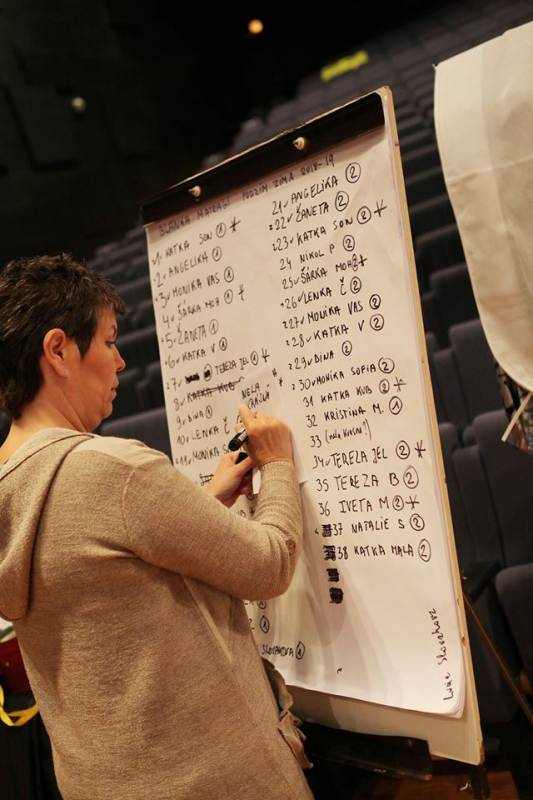 BLANKA MATRAGI PODZIM ZIMA 2018-19
1 KATKA SON 1
2 ANGELIKA 1
3 MONIKA VAS 1
4 ŠÁRKA MOH 1
5 ŽANETA 1
6 KATKA V 1
7 TEREZA JEL 1
8 KATKA KUB
NELA
9 DINA 1
10 LENKA Č
11 MONIKA S
SLOVÁKOVÁ 1
21 ANGELIKA 2
22 ŽANETA 2
23 KATKA SON 2
24 NIKOL P 2
25 ŠÁRKA MOH 2
26 LENKA Č 2
27 MONIKA VAS 2
28 KATKA V 2
29 DINA 2
30 MONIKA SOFIA 2
31 KATKA KUB 2
32 KRISTINA M. 1
33
34 TEREZA JEL 2
35 TEREZA B 2
36 IVETA M 2
37 NATALIE S 2
38 KATKA MALA 2